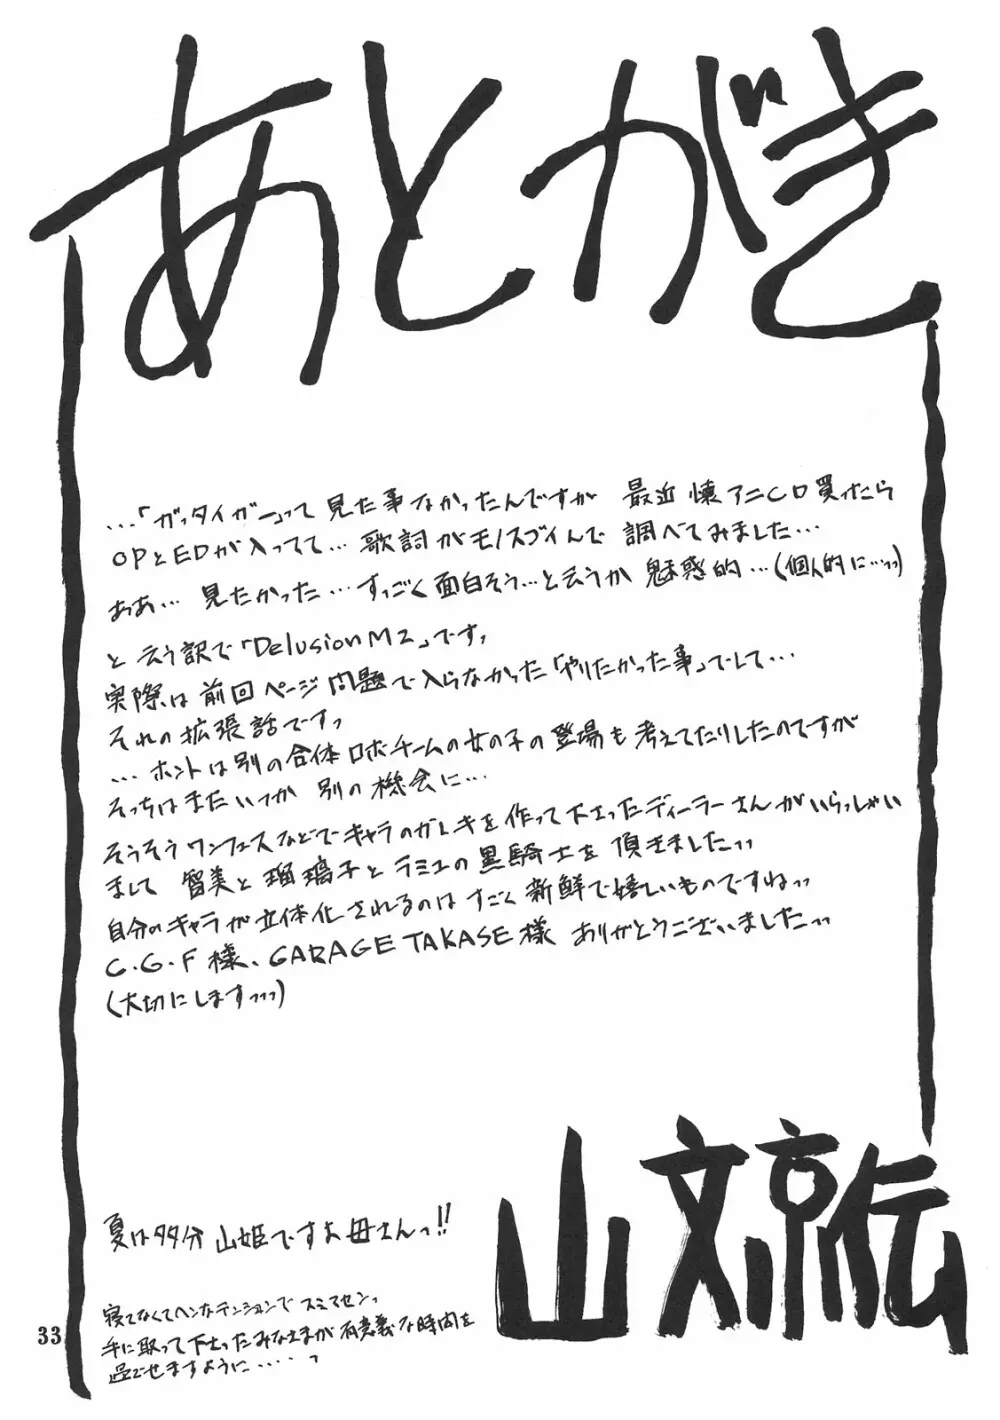 あとがき
…「ガッタイガー」って見た事なかったんですが 最近 懐アニCD買ったら
OPとEDが入ってて… 歌詞がモノスゴイんで 調べてみました…
ああ… 見たかった…すっごく面白そう…と云うか 魅惑的…(個人的に…ッッ)
と云う訳で「Delusion M2」ですッ
実際は前回ページ問題で入らなかった「やりたかった事」でして…
それの拡張話ですッ
…ホントは別の合体ロボチームの女の子の登場も考えてたりしたのですが
そっちはまたいつか 別の機会に…
そうそうワンフェスなどでキャラのガレキを作って下さったディーラーさんがいらっしゃい
まして 智美と瑠璃子とラミュの黒騎士を頂きましたッッ
自分のキャラが立体化されるのはすごく新鮮で嬉しいものですねッッ
C.G.F様、GARAGE TAKASE様 ありがとうございましたッッ
(大切にしますッッッ)
夏は多分 山姫ですよ母さんっ!!
山文京伝
寝てなくてヘンなテンションでスミマセンッ
手に取って下さったみなさまが有意義な時間を
過ごせますように・・・・ッ
33